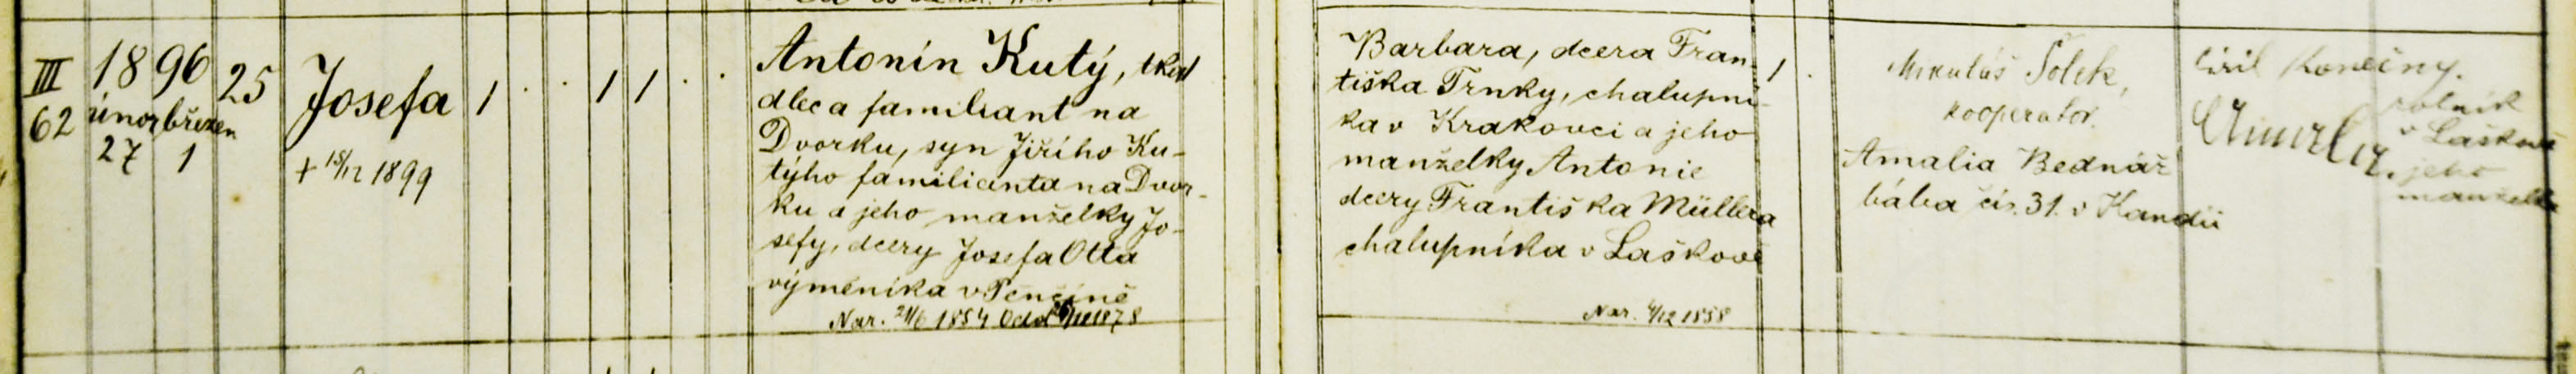 III
62
1896
únor březen
27 1
25
Josefa
+ 15/12 1899
1 . . 1 1 . .
Antonín Kutý, tkad
dlec a familiant na
Dvorku, syn Jiřího Ku-
týho familianta na Dvor-
ku a jeho manželky Jo-
sefy, dcery Josefa Otta
výměnika v Pěnčíně
Nar. 1854 1878
Barbara, dcera Fran-
tiška Trnky, chalupní-
ka v Krakovci a jeho
manželky Antonie
dcery Františka Müllera
chalupníka v Laškově
Nar. 4/12 1858
1 .
Mikuláš Šolek,
kooperator.
Amalia Bednář
bába čís. 31. v Kandii
Ciril Konečny.
rolník
v Laškově
jeho
manželka